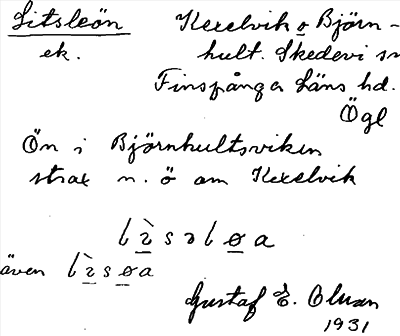 Litsleön Kexelvik o Björn-
ek. hult. Skedevi sn
Finspånga läns hd.
Ögl
Ön i Björnhultsviken
strax n. ö om Kexelvik
lı̀səløa
även lı̀søa
Gustaf E. Olsson
1931